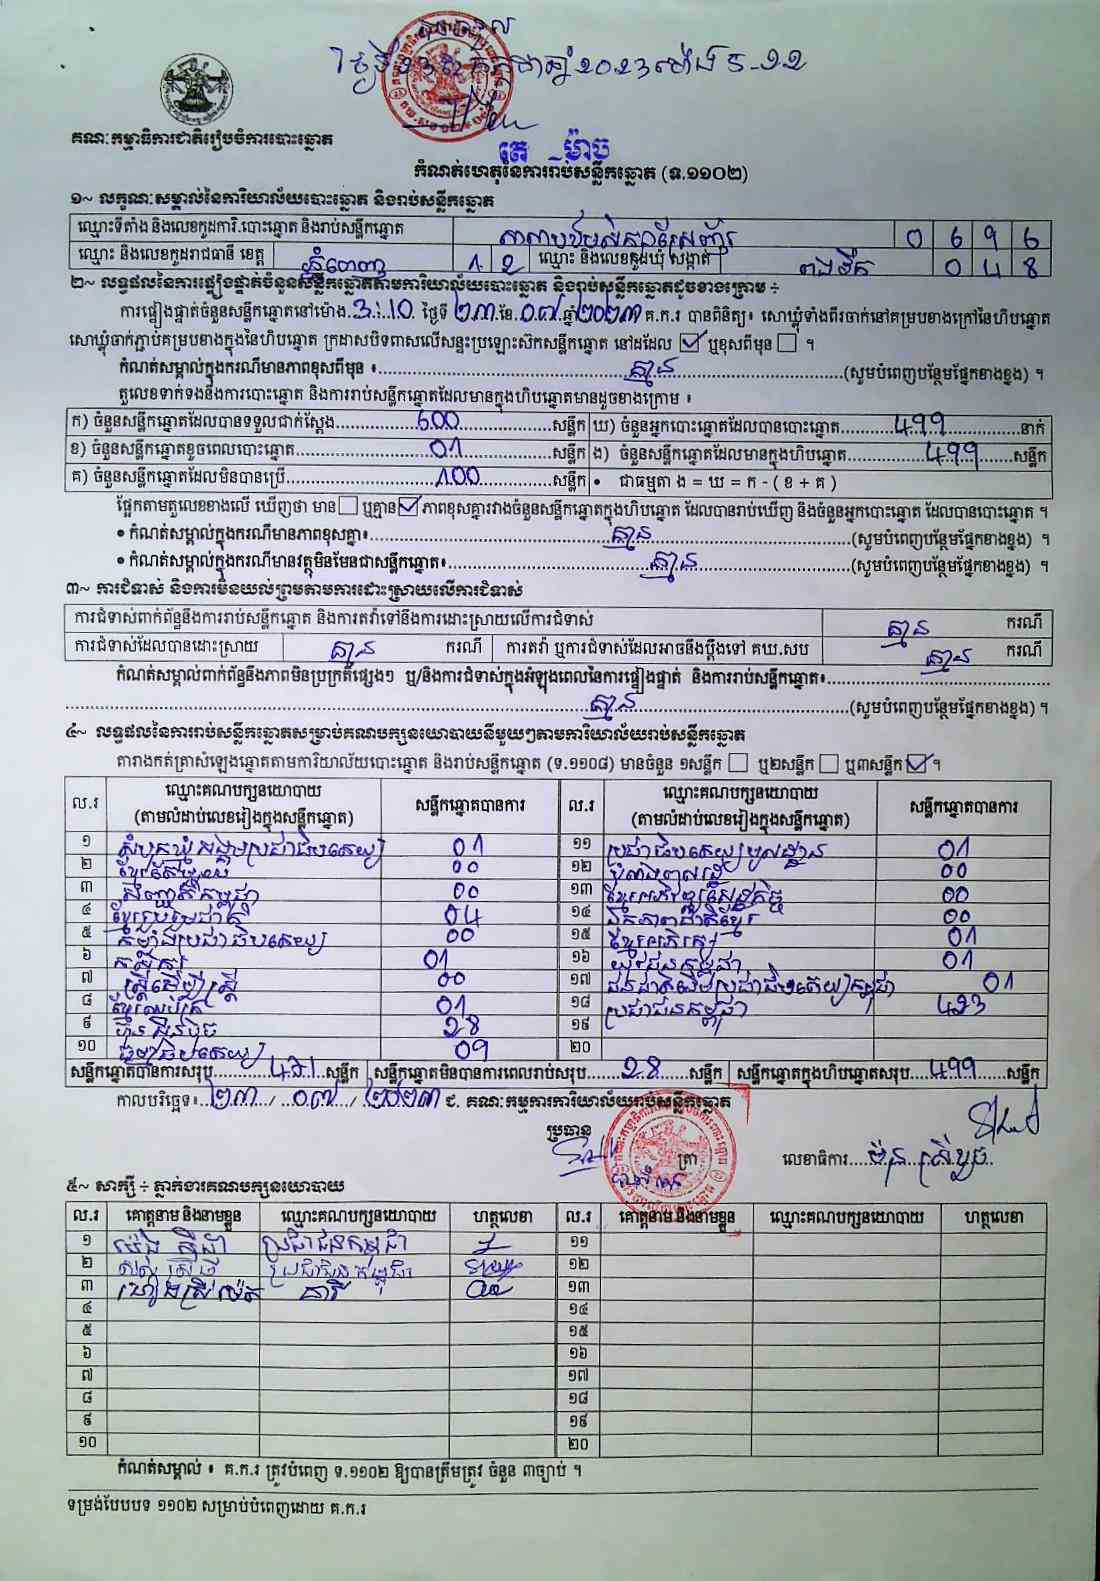 គណៈកម្មាធិការជាតិរៀបចំការបោះឆ្នោត
តេ ម៉ាច
កំណត់ហេតុនៃការរាប់សន្លឹកឆ្នោត (ទ.១១០២)
១~ លក្ខណៈសម្គាល់នៃការិយាល័យបោះឆ្នោត និងរាប់សន្លឹកឆ្នោត
ឈ្មោះទីតាំង និងលេខកូដការិ.បោះឆ្នោត និងរាប់សន្លឹកឆ្នោត 0 6 9 6
ឈ្មោះ និងលេខកូដរាជធានី ខេត្ត ភ្នំពេញ 1 2 ឈ្មោះ និងលេខកូដឃុំ សង្កាត់ 0 4 8
២~ លទ្ធផលនៃការផ្ទៀងផ្ទាត់ចំនួនសន្លឹកឆ្នោតតាមការិយាល័យបោះឆ្នោត និងរាប់សន្លឹកឆ្នោតដូចខាងក្រោម ÷
ការផ្ទៀងផ្ទាត់ចំនួនសន្លឹកឆ្នោតនៅម៉ោង 3:10 ថ្ងៃទី ២៣ ខែ ០៧ ឆ្នាំ ២០២៣ គ.ក.រ បានពិនិត្យ៖ សោឃ្លុំទាំងពីរចាក់នៅគម្របខាងក្រៅនៃហិបឆ្នោត
សោឃ្លុំចាក់ភ្ជាប់គម្របខាងក្នុងនៃហិបឆ្នោត ក្រដាសបិទពាសលើសន្ទះប្រឡោះសិកសន្លឹកឆ្នោត នៅដដែល ☑ ឬខុសពីមុន ☐ ។
កំណត់សម្គាល់ក្នុងករណីមានភាពខុសពីមុន ៖ គ្មាន (សូមបំពេញបន្ថែមផ្នែកខាងខ្នង) ។
តួលេខទាក់ទងនឹងការបោះឆ្នោត និងការរាប់សន្លឹកឆ្នោតដែលមានក្នុងហិបឆ្នោតមានដូចខាងក្រោម ៖
ក) ចំនួនសន្លឹកឆ្នោតដែលបានទទួលជាក់ស្តែង 600 សន្លឹក ឃ) ចំនួនអ្នកបោះឆ្នោតដែលបានបោះឆ្នោត 499 នាក់
ខ) ចំនួនសន្លឹកឆ្នោតខូចពេលបោះឆ្នោត 01 សន្លឹក ង) ចំនួនសន្លឹកឆ្នោតដែលមានក្នុងហិបឆ្នោត 499 សន្លឹក
គ) ចំនួនសន្លឹកឆ្នោតដែលមិនបានប្រើ 100 សន្លឹក • ជាធម្មតា ង = ឃ = ក - ( ខ + គ )
ផ្អែកតាមតួលេខខាងលើ ឃើញថា មាន ☐ ឬគ្មាន ☑ ភាពខុសគ្នារវាងចំនួនសន្លឹកឆ្នោតក្នុងហិបឆ្នោត ដែលបានរាប់ឃើញ និងចំនួនអ្នកបោះឆ្នោត ដែលបានបោះឆ្នោត ។
• កំណត់សម្គាល់ក្នុងករណីមានភាពខុសគ្នា៖ គ្មាន (សូមបំពេញបន្ថែមផ្នែកខាងខ្នង) ។
• កំណត់សម្គាល់ក្នុងករណីមានវត្ថុមិនមែនជាសន្លឹកឆ្នោត៖ គ្មាន (សូមបំពេញបន្ថែមផ្នែកខាងខ្នង) ។
៣~ ការជំទាស់ និងការមិនយល់ព្រមតាមការដោះស្រាយលើការជំទាស់
ការជំទាស់ពាក់ព័ន្ធនឹងការរាប់សន្លឹកឆ្នោត និងការតវ៉ាទៅនឹងការដោះស្រាយលើការជំទាស់ គ្មាន ករណី
ការជំទាស់ដែលបានដោះស្រាយ គ្មាន ករណី ការតវ៉ា ឬការជំទាស់ដែលអាចនឹងប្តឹងទៅ គឃ.សប គ្មាន ករណី
កំណត់សម្គាល់ពាក់ព័ន្ធនឹងភាពមិនប្រក្រតីផ្សេងៗ ឬ/និងការជំទាស់ក្នុងអំឡុងពេលនៃការផ្ទៀងផ្ទាត់ និងការរាប់សន្លឹកឆ្នោត៖
គ្មាន (សូមបំពេញបន្ថែមផ្នែកខាងខ្នង) ។
៤~ លទ្ធផលនៃការរាប់សន្លឹកឆ្នោតសម្រាប់គណបក្សនយោបាយនីមួយៗតាមការិយាល័យរាប់សន្លឹកឆ្នោត
តារាងកត់ត្រាសំឡេងឆ្នោតតាមការិយាល័យបោះឆ្នោត និងរាប់សន្លឹកឆ្នោត (ទ.១១០៨) មានចំនួន ១សន្លឹក ☐ ឬ២សន្លឹក ☐ ឬ៣សន្លឹក ☑ ។
ល.រ ឈ្មោះគណបក្សនយោបាយ (តាមលំដាប់លេខរៀងក្នុងសន្លឹកឆ្នោត) សន្លឹកឆ្នោតបានការ ល.រ ឈ្មោះគណបក្សនយោបាយ (តាមលំដាប់លេខរៀងក្នុងសន្លឹកឆ្នោត) សន្លឹកឆ្នោតបានការ
១ សំបុកឃ្មុំសង្គមប្រជាធិបតេយ្យ 01 ១១ ប្រជាធិបតេយ្យមូលដ្ឋាន 01
២ ខ្មែរតែមួយ 00 ១២ 00
៣ សញ្ជាតិកម្ពុជា 00 ១៣ ខ្មែរអភិវឌ្ឍន៍សេដ្ឋកិច្ច 00
៤ ខ្មែររួបរួមជាតិ 04 ១៤ ឯកភាពជាតិខ្មែរ 00
៥ កម្លាំងប្រជាធិបតេយ្យ 00 ១៥ ខ្មែរអភិរក្ស 01
៦ កសិករ 01 ១៦ យុវជនកម្ពុជា 01
៧ ស្ត្រីដើម្បីស្ត្រី 00 ១៧ ជនជាតិដើមប្រជាធិបតេយ្យកម្ពុជា 01
៨ ខ្មែរឈប់ក្រ 01 ១៨ ប្រជាជនកម្ពុជា 423
៩ ហ៊្វុនស៊ិនប៉ិច 28 ១៩
១០ ធម្មាធិបតេយ្យ 09 ២០
សន្លឹកឆ្នោតបានការសរុប 471 សន្លឹក សន្លឹកឆ្នោតមិនបានការពេលរាប់សរុប 28 សន្លឹក សន្លឹកឆ្នោតក្នុងហិបឆ្នោតសរុប 499 សន្លឹក
កាលបរិច្ឆេទ៖ ២៣ / ០៧ / ២០២៣ ជ. គណៈកម្មការការិយាល័យរាប់សន្លឹកឆ្នោត
ប្រធាន
ត្រា លេខាធិការ
៥~ សាក្សី ÷ ភ្នាក់ងារគណបក្សនយោបាយ
ល.រ គោត្តនាម និងនាមខ្លួន ឈ្មោះគណបក្សនយោបាយ ហត្ថលេខា ល.រ គោត្តនាម និងនាមខ្លួន ឈ្មោះគណបក្សនយោបាយ ហត្ថលេខា
១ ប្រជាជនកម្ពុជា ១១
២ ប្រជាជនកម្ពុជា ១២
៣ ១៣
៤ ១៤
៥ ១៥
៦ ១៦
៧ ១៧
៨ ១៨
៩ ១៩
១០ ២០
កំណត់សម្គាល់ ៖ គ.ក.រ ត្រូវបំពេញ ទ.១១០២ ឱ្យបានត្រឹមត្រូវ ចំនួន ៣ច្បាប់ ។
ទម្រង់បែបបទ ១១០២ សម្រាប់បំពេញដោយ គ.ក.រ